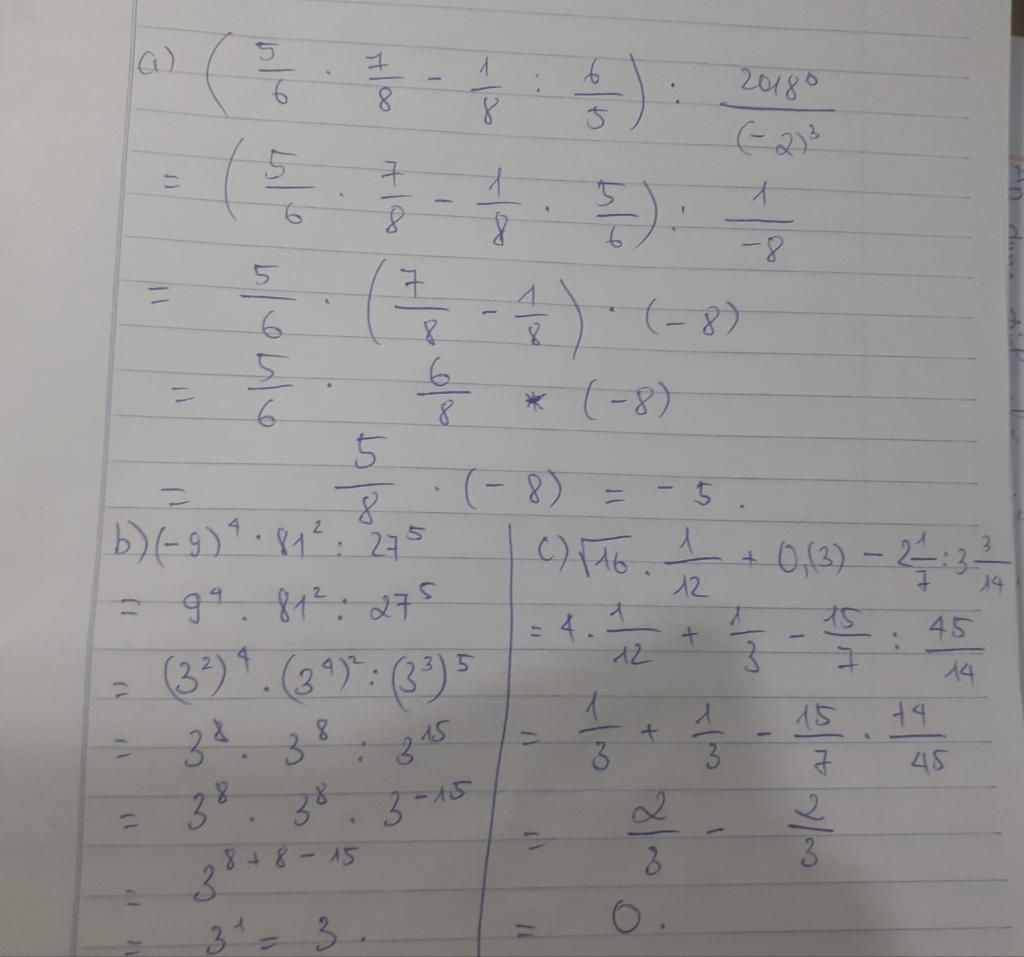 a) (5/6 · 7/8 - 1/8 : 6/5) : 2018⁰/(-2)³
= (5/6 · 7/8 - 1/8 · 5/6) : 1/-8
= 5/6 · (7/8 - 1/8) · (-8)
= 5/6 · 6/8 * (-8)
= 5/8 · (-8) = -5.
b) (-9)⁴ · 81² : 27⁵
= 9⁴ · 81² : 27⁵
= (3²)⁴ · (3⁴)² : (3³)⁵
= 3⁸ · 3⁸ : 3¹⁵
= 3⁸ · 3⁸ · 3⁻¹⁵
= 3⁸⁺⁸⁻¹⁵
= 3¹ = 3.
c) √16 · 1/12 + 0,(3) - 2 1/7 : 3 3/14
= 4 · 1/12 + 1/3 - 15/7 : 45/14
= 1/3 + 1/3 - 15/7 · 14/45
= 2/3 - 2/3
= 0.